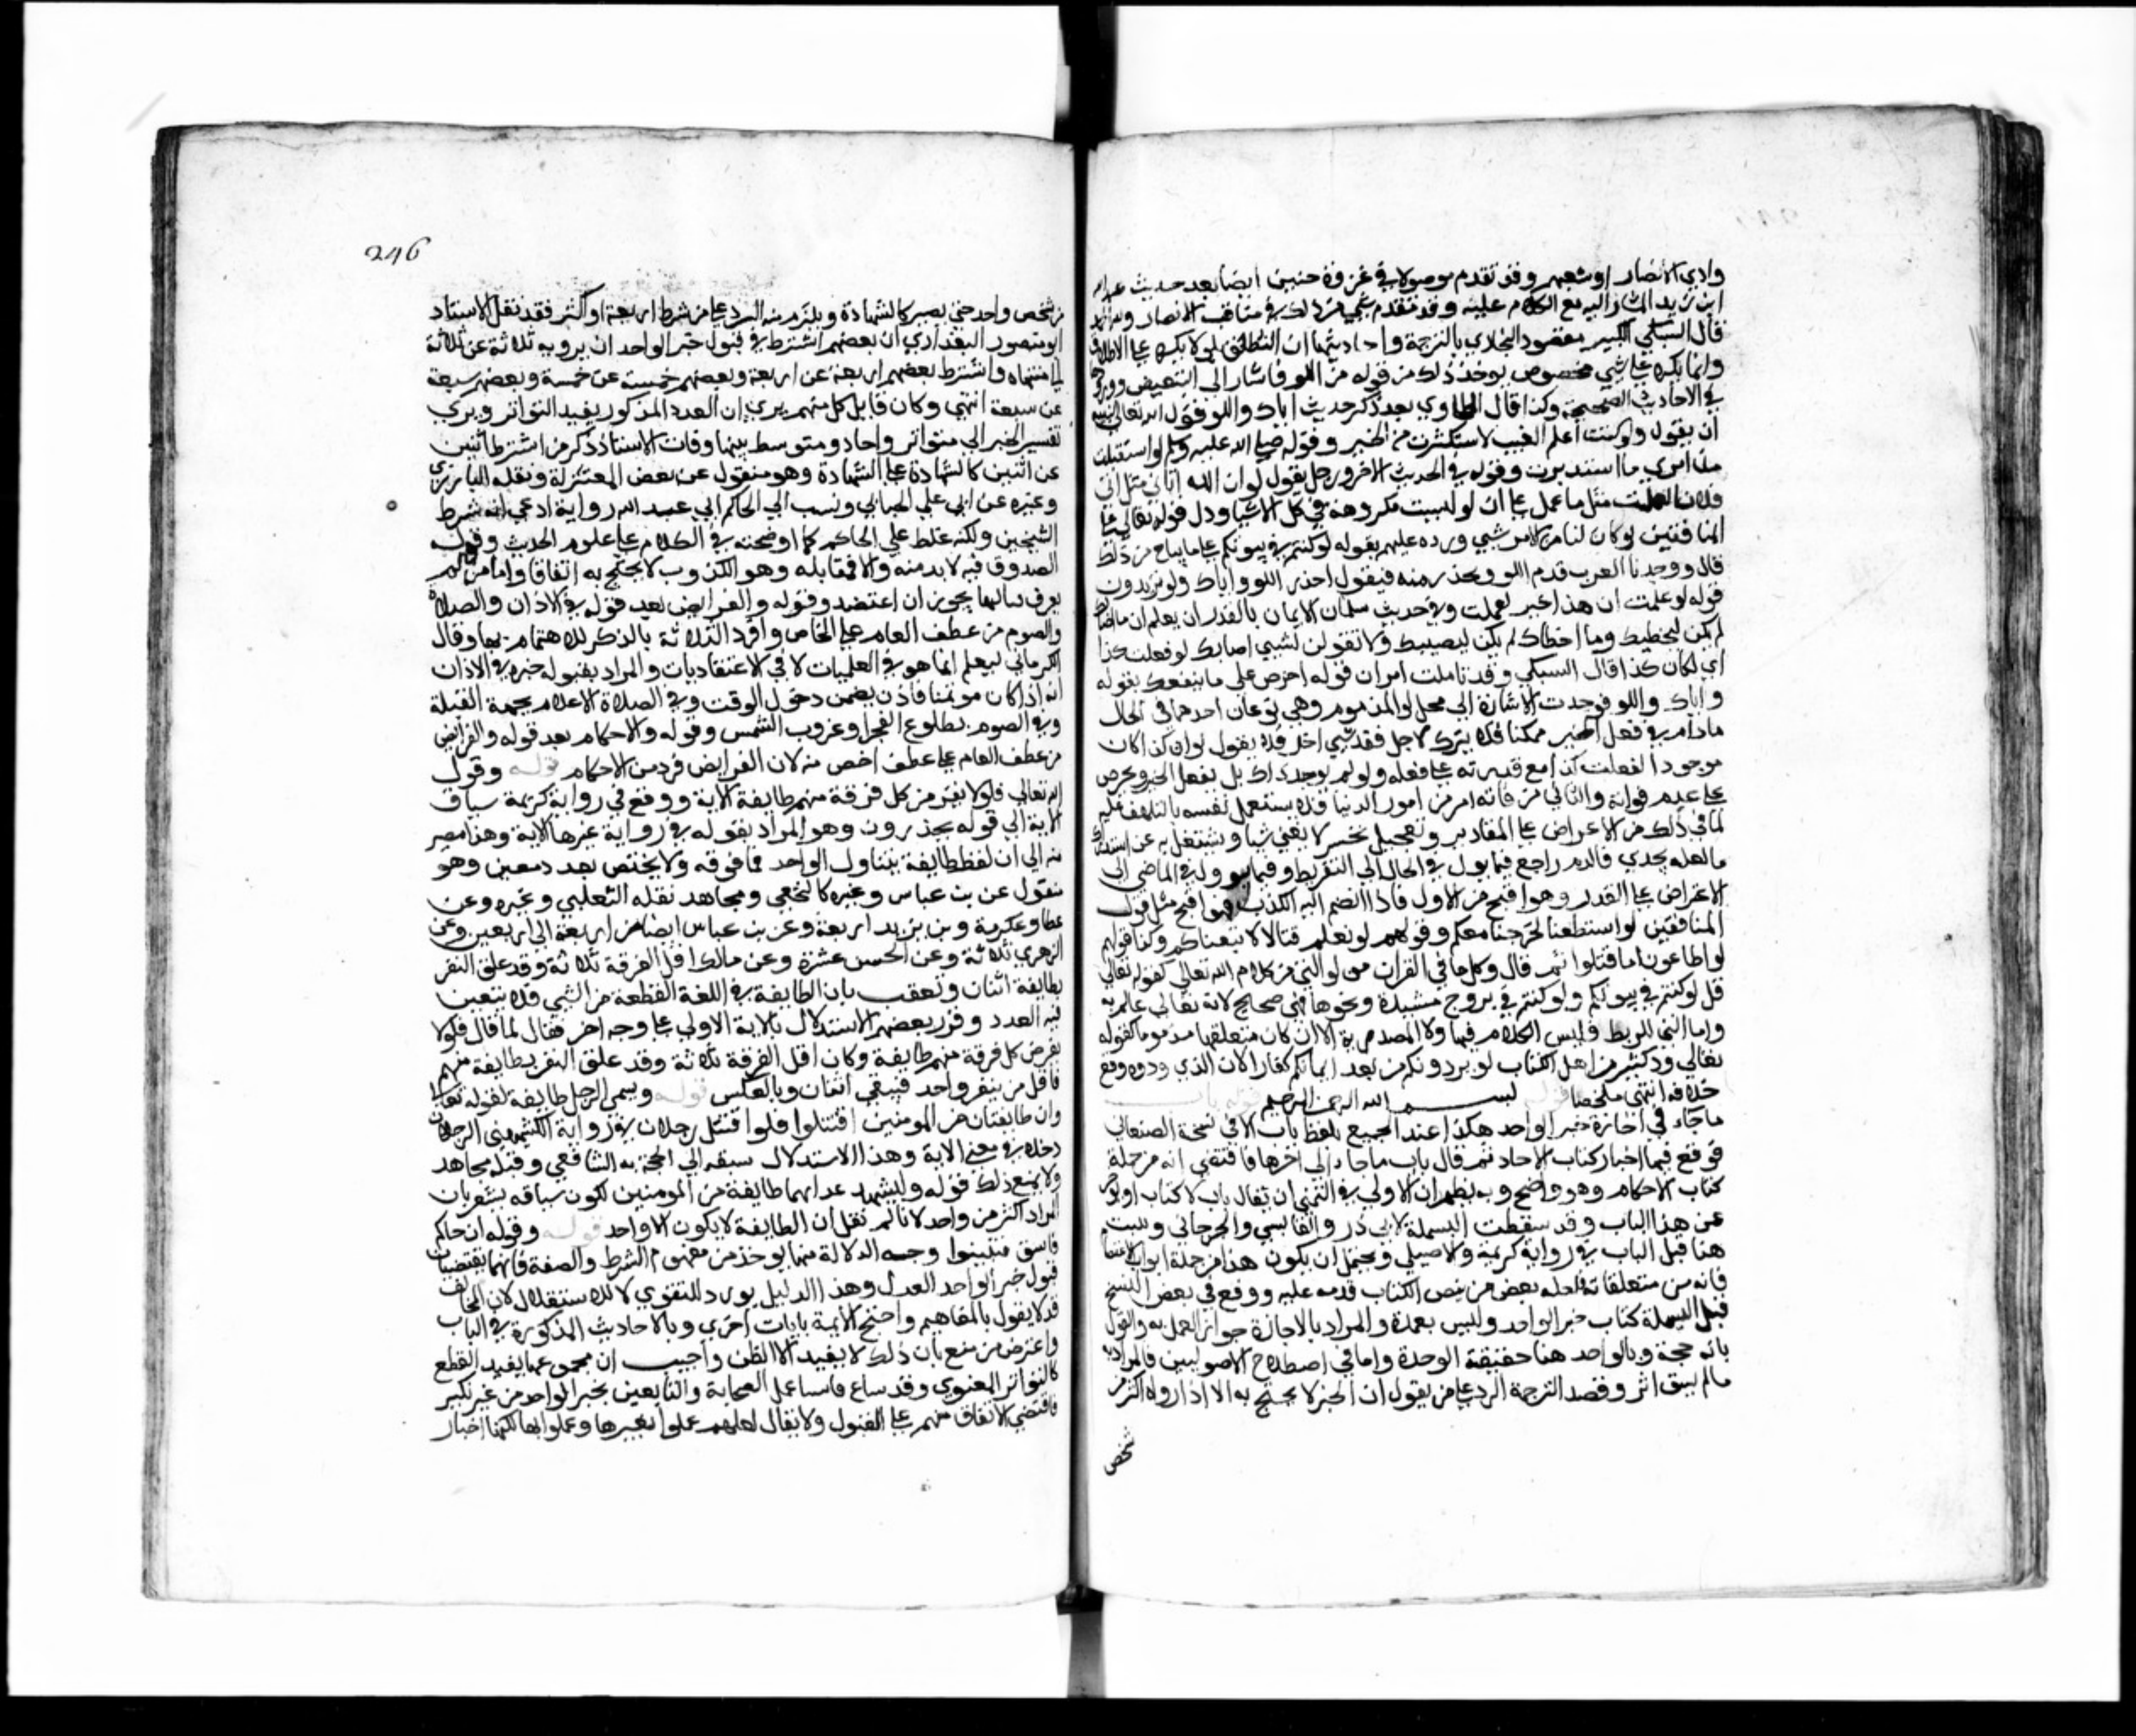 وادي الانصار او شعبهم وقد تقدم موصولا في غزوة حنين ايضا بعد حديث عبد الله
ابن زيد المشار اليه مع الكلام عليه وقد تقدم شي من ذلك في مناقب الانصار
قال السبكي الكبير مقصود البخاري بالترجمة واحاديثها ان النطق بلو لا يكره على الاطلاق
وانما يكره على شي مخصوص يوخذ ذلك من قوله من اللو فاشار الى التبعيض وورودها
في الاحاديث الصحيحة وكذا قال الطحاوي بعد ذكر حديث اياك واللو قول الله تعالى لنبيه
ان يقول ولو كنت اعلم الغيب لاستكثرت من الخير وقوله صلى الله عليه وسلم لو استقبلت
من امري ما استدبرت وقوله في الحديث الاخر ورجل يقول لو ان الله اتاني مثل اتى
فلانا لعملت مثل ما عمل على ان لو ليست مكروهة في كل الاشيا ودل قوله تعالى عن
المنافقين لو كان لنا من الامر شي ورده عليهم بقوله لو كنتم في بيوتكم على ما يباح من ذلك
قال ووجدنا العرب تذم اللو وتحذر منه فيقول احذر اللو واياك ولو يريدون
قوله لو علمت ان هذا خير لعملت وفي حديث سلمان الايمان بالقدر ان يعلم ان ما اصابك
لم يكن ليخطيك وما اخطاك لم يكن ليصيبك ولا تقولن لشيي اصابك لو فعلت كذا
اي لكان كذا قال السبكي وقد تاملت اقتران قوله احرص على ما ينفعك بقوله
واياك واللو فوجدت الاشارة الى محل لو المذموم وهي نوعان احدهما في الحال
مادام في فعل الخير ممكنا فلا يترك لاجل فقد شيي اخر فلا يقول لو ان كذا كان
موجودا لفعلت كذا مع قدرته على فعله ولو لم يوجد ذاك بل يفعل الخير ويحرص
على عدم فواته والثاني من فاته امر من امور الدنيا فلا يستعمل نفسه بالتلهف عليه
لما في ذلك من الاعراض على المقادير وتعجيل تحسر لا يغني شيا ويشتغل به عن استدراك
ما لعله يجدي فالذم راجع فيما يول في الحال الى التفريط وفيما يوول في الماضي الى
الاعراض على القدر وهو اقبح من الاول فاذا انضم اليه الكذب فهو اقبح مثل قول
المنافقين لو استطعنا لخرجنا معكم وقولهم لو نعلم قتالا لاتبعناكم وكذا قولهم
لو اطاعونا ما قتلوا ثم قال وكل ما في القران من لو التي من كلام الله تعالى كقوله تعالى
قل لو كنتم في بيوتكم ولو كنتم في بروج مشيدة ونحوها فهي صحيح لانه تعالى عالم به
واما التي للربط فليس الكلام فيها ولا المصدرية الا ان كان متعلقها مذموما كقوله
تعالى ود كثير من اهل الكتاب لو يردونكم من بعد ايمانكم كفارا لان الذي ودوه وقع
خلافه انتهى ملخصا قوله بسم الله الرحمن الرحيم قوله باب
ما جاء في اجازة خبر الواحد هكذا عند الجميع بلفظ باب الا في نسخة الصنعاني
فوقع فيها اخبار كتاب الاحاد ثم قال باب ما جاء الى اخرها فاقتضى انه من جملة
كتاب الاحكام وهو واضح وبه يظهر ان الاولى في التمني ان يقال باب لا كتاب او يوخر
عن هذا الباب وقد سقطت البسملة لابي ذر والقابسي والجرجاني وثبتت
هنا قبل الباب في رواية كريمة والاصيلي ويحتمل ان يكون هذا من جملة ابواب الاعتصام
فانه من متعلقاته فلعله بعض من بيض الكتاب قدمه عليه ووقع في بعض النسخ
قبل البسملة كتاب خبر الواحد وليس بعمدة والمراد بالاجازة جواز العمل به والقول
بانه حجة وبالواحد هنا حقيقة الوحدة واما في اصطلاح الاصوليين فالمراد به
ما لم يبق اثر وقصد الترجمة الرد على من يقول ان الخبر لا يحتج به الا اذا رواه اكثر من
شخص
246
من شخص واحد حتى يصير كالشهادة ويلزم منه الرد على من شرط اربعة او اكثر فقد نقل الاستاد
ابو منصور البغدادي ان بعضهم اشترط في قبول خبر الواحد ان يرويه ثلاثة عن ثلاثة
الى منتهاه واشترط بعضهم اربعة عن اربعة وبعضهم خمسة عن خمسة وبعضهم سبعة
عن سبعة انتهى وكان قايل كل منهم يرى ان العدد المذكور يفيد التواتر ويرى
تقسيم الخبر الى متواتر واحاد ومتوسط بينهما وفات الاستاذ ذكر من اشترط اثنين
عن اثنين كالشهادة على الشهادة وهو منقول عن بعض المعتزلة ونقله المازري
وغيره عن ابي علي الجبائي ونسب الى الحاكم ابي عبد الله رواية ادعى انه شرط
الشيخين ولكنه غلط على الحاكم كما اوضحته في الكلام على علوم الحديث وقوله
الصدوق قيد لا بد منه والا فمقابله وهو الكذوب لا يحتج به اتفاقا واما من لم
يعرف حاله يجوز ان اعتضد وقوله والفرايض بعد قوله في الاذان والصلاة
والصوم من عطف العام على الخاص وافرد الثلاثة بالذكر للاهتمام بها وقال
الكرماني ليعلم انما هو في العمليات لا في الاعتقاديات والمراد بقبول خبره في الاذان
انه اذا كان موتمنا فاذن تضمن دخول الوقت وفي الصلاة الاعلام بجهة القبلة
وفي الصوم بطلوع الفجر او غروب الشمس وقوله والاحكام بعد قوله والفرايض
من عطف العام على عطف اخص منه لان الفرايض فرد من الاحكام قوله وقول
الله تعالى فلولا نفر من كل فرقة منهم طايفة الاية ووقع في رواية كريمة سياق
الاية الى قوله يحذرون وهو المراد بقوله في رواية غيرها الاية وهذا مصير
منه الى ان لفظ طايفة يتناول الواحد فما فوقه ولا يختص بعدد معين وهو
منقول عن بن عباس وغيره كالنخعي ومجاهد نقله الثعلبي وغيره وعن
عطا وعكرمة وبن زيد اربعة وعن بن عباس ايضا من اربعة الى اربعين وعن
الزهري ثلاثة وعن الحسن عشرة وعن مالك اقل الفرقة ثلاثة وقد علق النفر
بطايفة اثنان وتعقب بان الطايفة في اللغة القطعة من الشي فلا يتعين
فيه العدد وقرر بعضهم الاستدلال بالاية الاولى على وجه اخر فقال لما قال فلولا
نفر من كل فرقة منهم طايفة وكان اقل الفرقة ثلاثة وقد علق النفر بطايفة منهم
فاقل من ينفر واحد فيبقى اثنان وبالعكس قوله ويسمى الرجل طايفة لقوله تعالى
وان طايفتان من المومنين اقتتلوا فلو اقتتل رجلان في رواية الكشميهني الرجلان
دخلا في معنى الاية وهذا الاستدلال سبقه الى الحجة به الشافعي وقبله مجاهد
ولا يمنع ذلك قوله وليشهد عذابهما طايفة من المومنين لكون سياقه يشعر بان
المراد اكثر من واحد لانا لم نقل ان الطايفة لا يكون الا واحد قوله وقوله ان جاكم
فاسق فتبينوا وجه الدلالة منها يوخذ من مفهوم الشرط والصفة فانهما يقتضيان
قبول خبر الواحد العدل وهذا الدليل يورد للتقوي لا للاستقلال لان المخالف
قد لا يقول بالمفاهيم واحتج الايمة بايات اخرى وبالاحاديث المذكورة في الباب
واعترض من منع بان ذلك لا يفيد الا الظن واجيب ان مجموعها يفيد القطع
كالتواتر المعنوي وقد ساغ فاشيا عمل الصحابة والتابعين بخبر الواحد من غير نكير
فاقتضى الاتفاق منهم على القبول ولا يقال لعلهم عملوا بغيرها وعملوا بها لكنها اخبار